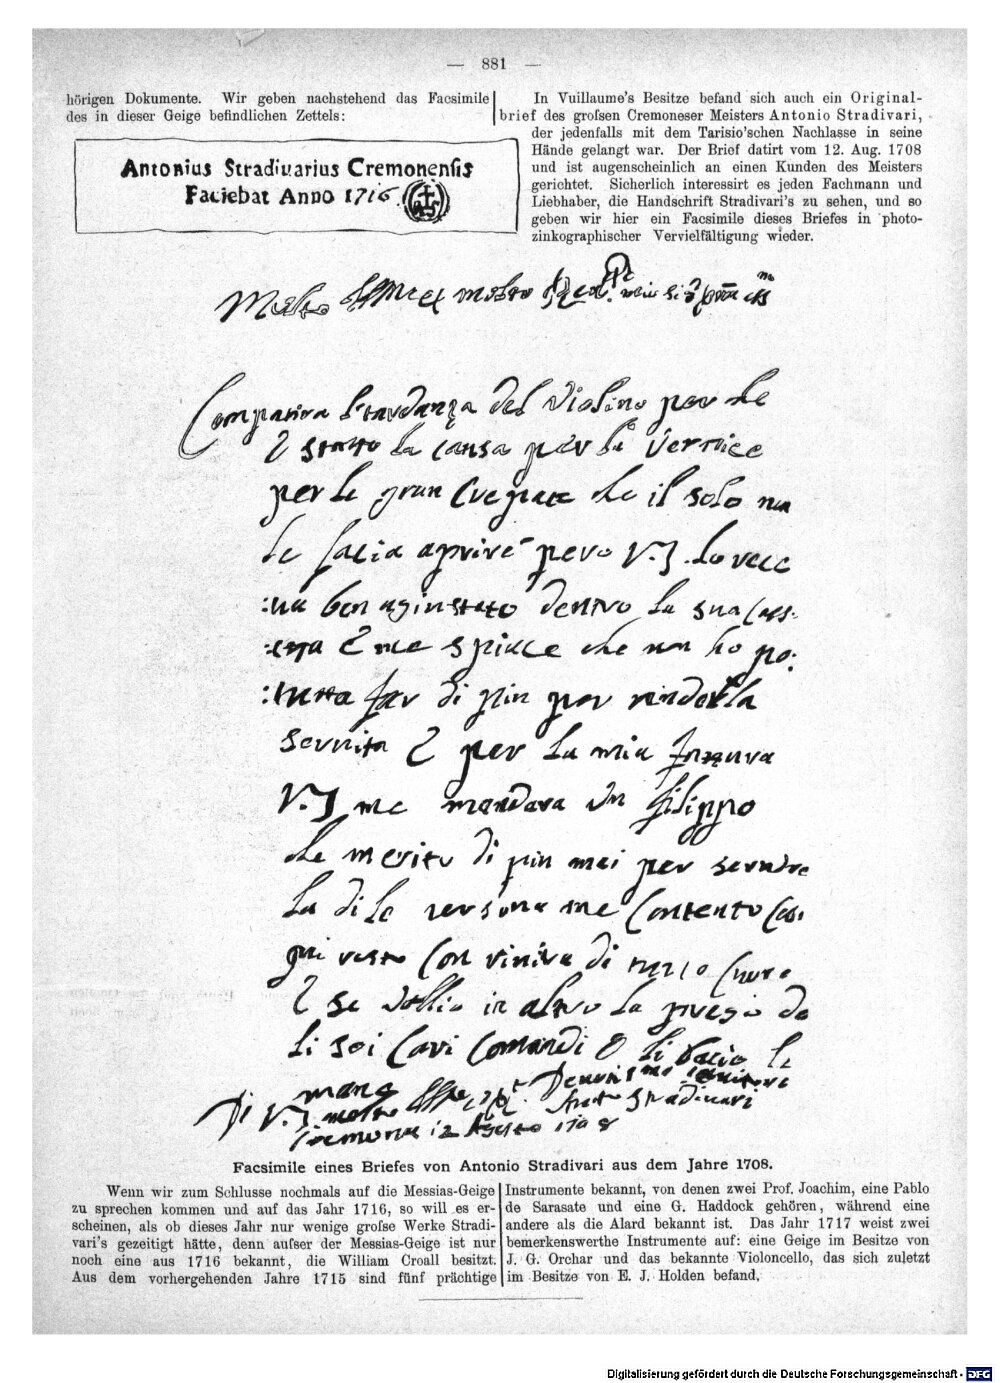 — 881 —
hörigen Dokumente. Wir geben nachstehend das Facsimile
des in dieser Geige befindlichen Zettels:
Antonius Stradiuarius Cremonensis
Faciebat Anno 1716
AS
In Vuillaume's Besitze befand sich auch ein Original-
brief des grofsen Cremoneser Meisters Antonio Stradivari,
der jedenfalls mit dem Tarisio'schen Nachlasse in seine
Hände gelangt war. Der Brief datirt vom 12. Aug. 1708
und ist augenscheinlich an einen Kunden des Meisters
gerichtet. Sicherlich interessirt es jeden Fachmann und
Liebhaber, die Handschrift Stradivari's zu sehen, und so
geben wir hier ein Facsimile dieses Briefes in photo-
zinkographischer Vervielfältigung wieder.
molto
Compatira l'tardanza del Violino per che
è stato la causa per la Vernice
per le gran Crepate che il solo non
le facia aprire pero V.S. lo rece
:ua ben agiustato dentro la sua Cass:
:etta è me spiace che non ho po:
:tutta far di piu per renderla
seruita è per la mia fattura
V.S me mandara Un filippo
che merita di piu mai per seruire
la di le persona me Contento Cosi
qui resto Con di tutto Cuore
è se in altro la prego de
li soi Cari Comandi è li bacio le
mane
Di V.S molto Deuotismo seruitore
Stradiuari
Cremona 12 Agosto 1708
Facsimile eines Briefes von Antonio Stradivari aus dem Jahre 1708.
Wenn wir zum Schlusse nochmals auf die Messias-Geige
zu sprechen kommen und auf das Jahr 1716, so will es er-
scheinen, als ob dieses Jahr nur wenige grofse Werke Stradi-
vari's gezeitigt hätte, denn aufser der Messias-Geige ist nur
noch eine aus 1716 bekannt, die William Croall besitzt.
Aus dem vorhergehenden Jahre 1715 sind fünf prächtige
Instrumente bekannt, von denen zwei Prof. Joachim, eine Pablo
de Sarasate und eine G. Haddock gehören, während eine
andere als die Alard bekannt ist. Das Jahr 1717 weist zwei
bemerkenswerthe Instrumente auf: eine Geige im Besitze von
J. G. Orchar und das bekannte Violoncello, das sich zuletzt
im Besitze von E. J. Holden befand.
Digitalisierung gefördert durch die Deutsche Forschungsgemeinschaft - DFG